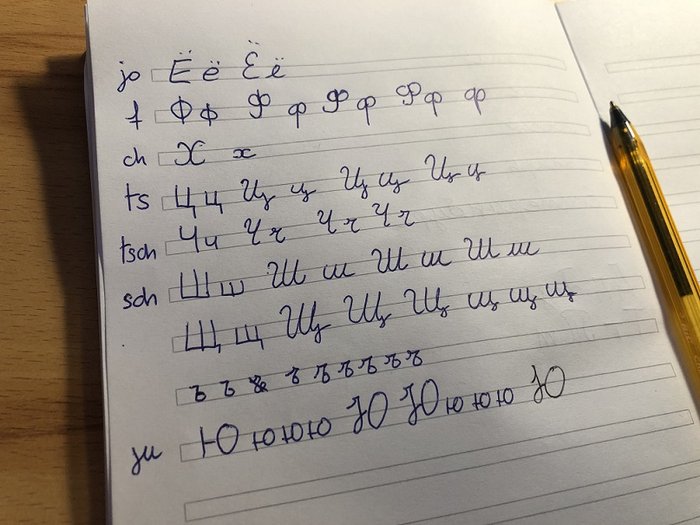 jo Ё ё Ё ё
f Ф ф Ф ф Ф ф Ф ф ф
ch Х х
ts Ц ц Ц ц Ц ц Ц ц
tsch Ч ч Ч ч Ч ч Ч ч
sch Ш ш Ш ш Ш ш Ш ш
Щ щ Щ Щ Щ щ щ щ
ъ ъ ъ ъ ъ ъ ъ ъ
ju Ю ю ю ю Ю Ю ю ю ю Ю